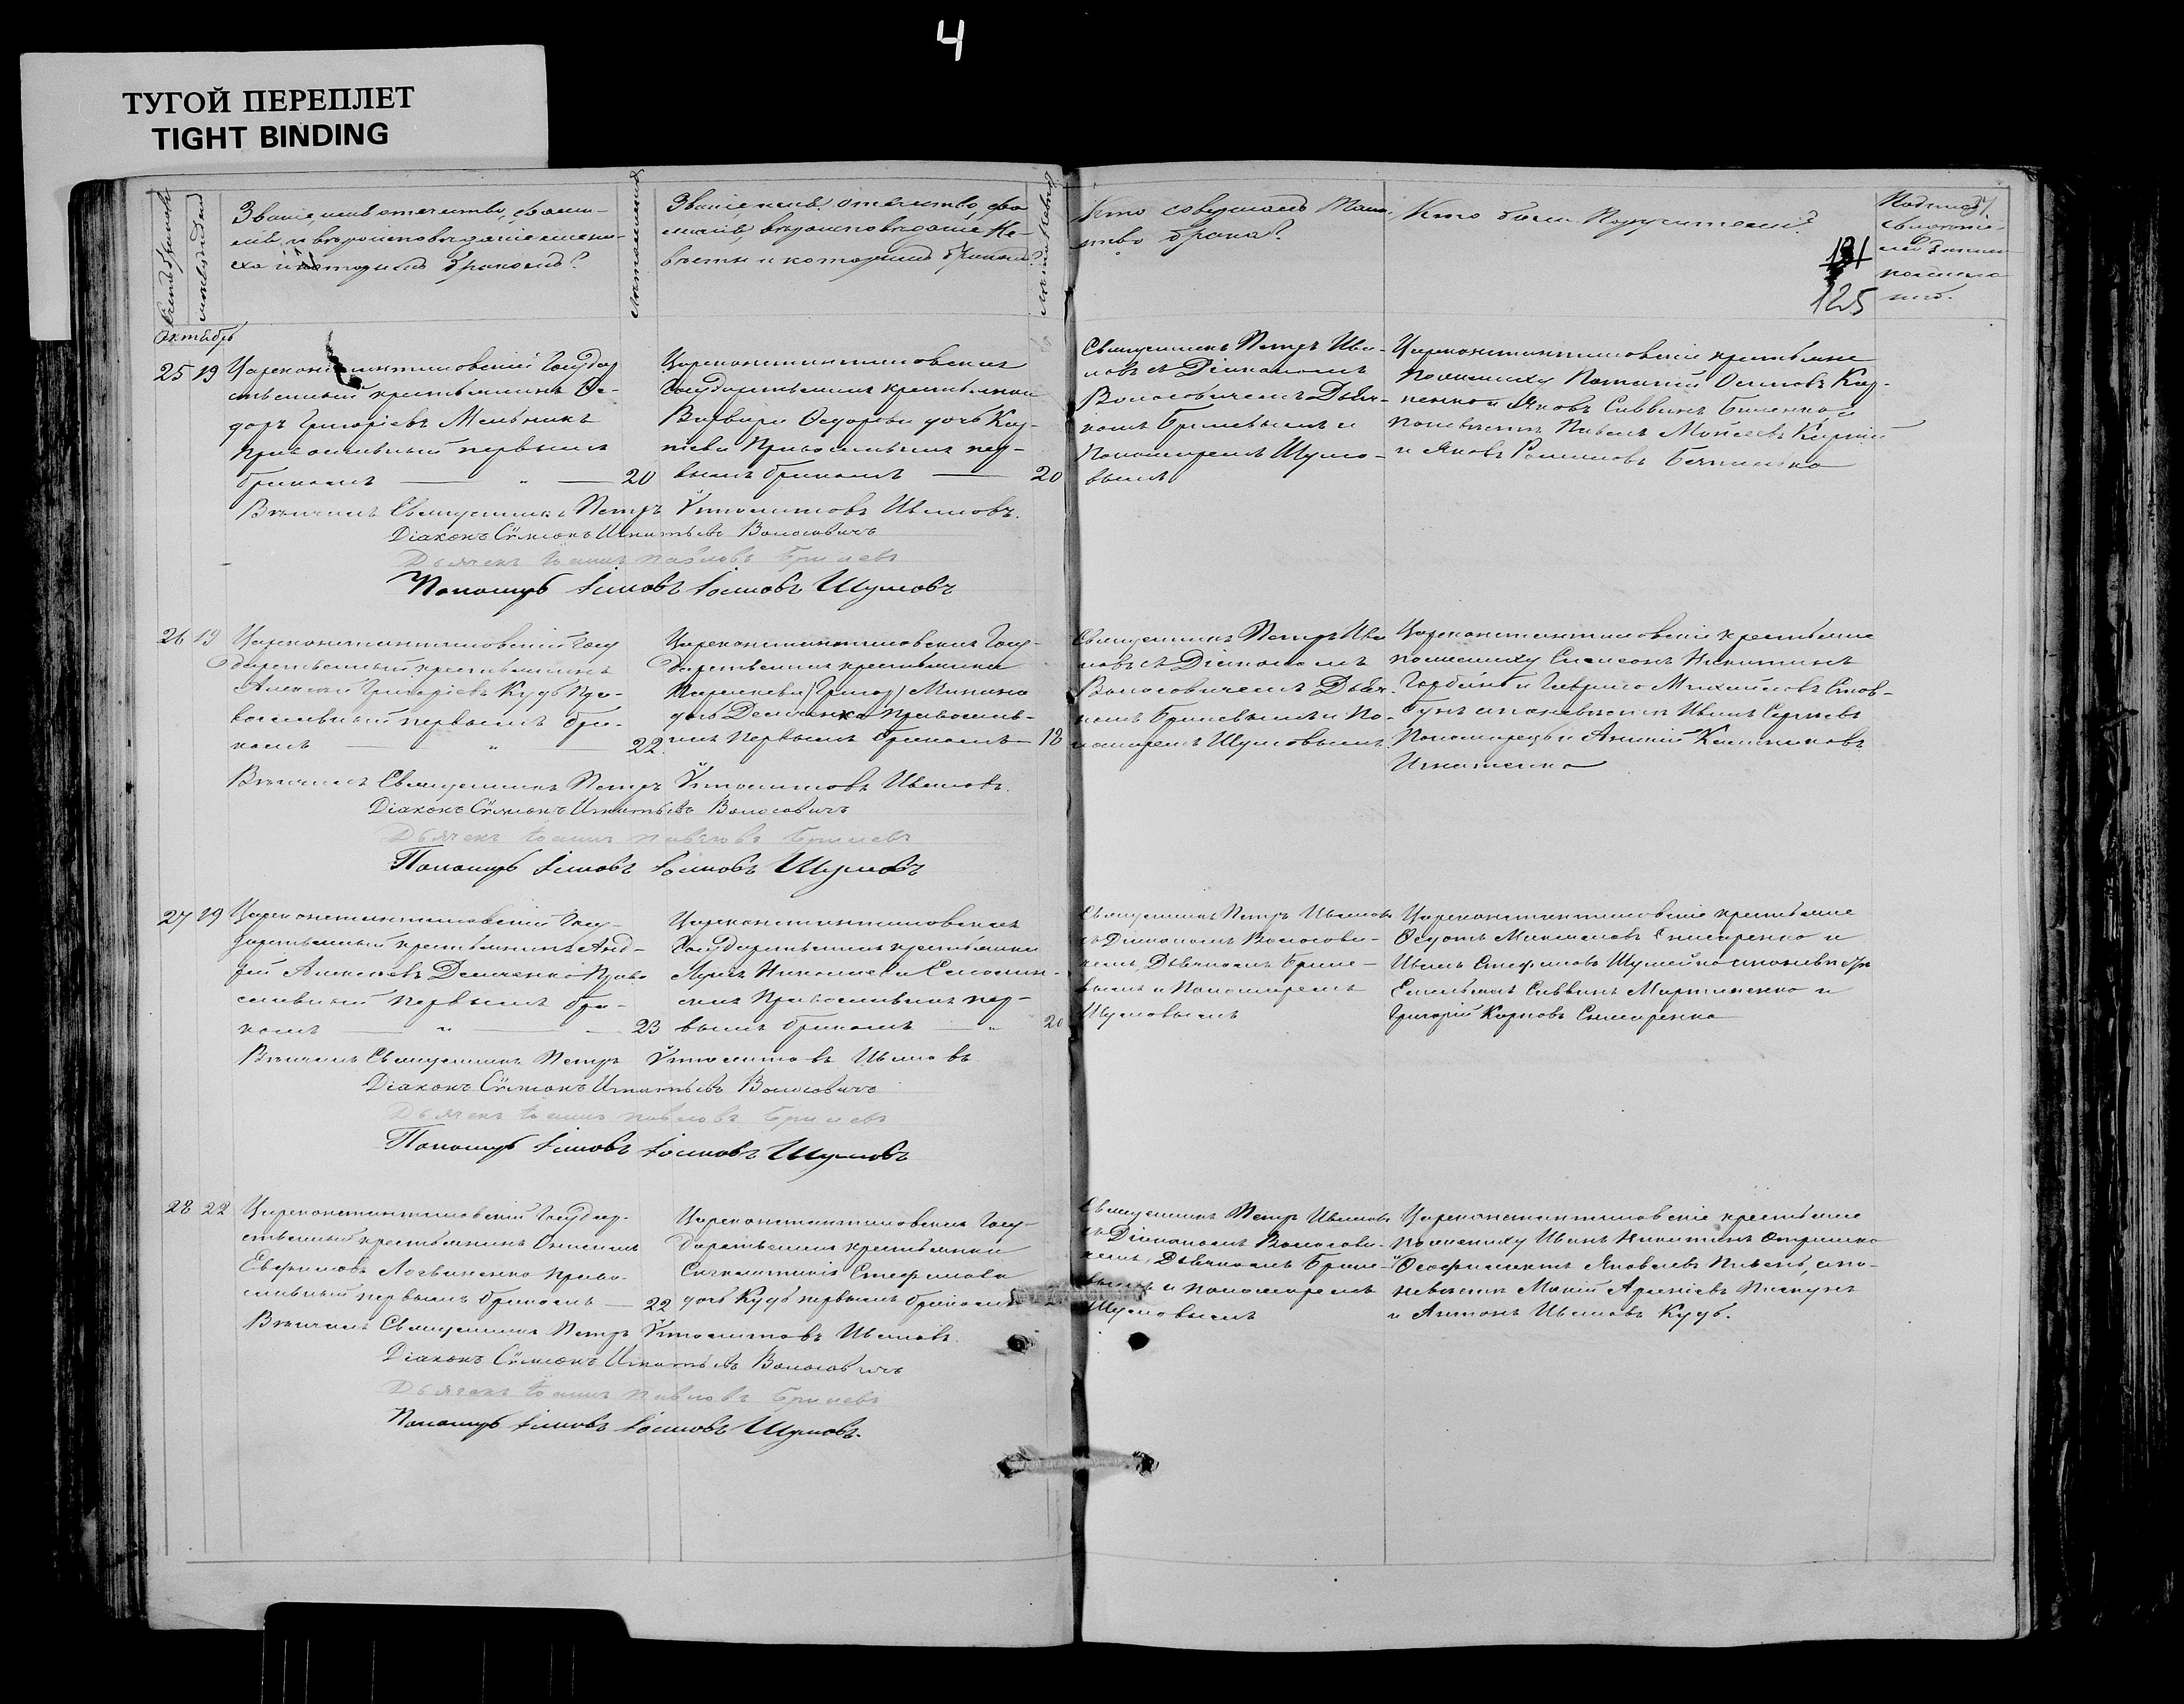 4
ТУГОЙ ПЕРЕПЛЕТ
TIGHT BINDING
Званіе, имя отечество, фами-
лія, и вѣроисповѣданіе жени-
ха и которымъ бракомъ?
Лѣта жениха
Званіе, имя, отечество, фа
милія, вѣроисповѣданіе Не-
вѣсты и которымъ бракомъ?
Лѣта Невѣсты
Кто совершалъ Таин
ство брака?
Кто были Поручители?
131
125
Октябрь
25 19 Цареконстантиновскій Государ
ственный крестьянинъ Ѳе-
доръ Григоріевъ Мельникъ
Православный первымъ
бракомъ — „ — 20
Цареконстантиновская
Государственная крестьянка
Варвара Ѳедорова дочь
Православная пер-
вымъ бракомъ — 20
Священникъ Петръ Ива-
новъ съ Діакономъ
Волосовичемъ Дьяч-
комъ Брилевымъ и
Пономаремъ Шумо-
вымъ
Цареконстантиновскіе крестьяне
по жениху Потапій Осиповъ
и Яковъ Саввинъ
по невѣстѣ Павелъ Мойсеевъ
и Яковъ
Вѣнчалъ Священникъ Петръ Ѵпполитовъ Ивановъ.
Діаконъ Сѵмеонъ Игнатьевъ Волосовичъ
Дьячекъ Іоаннъ Павловъ Брилевъ
Пономарь Іаковъ Іоановъ Шумовъ
26 19 Цареконстантиновскій Госу
дарственный крестьянинъ
Алексѣй Григоріевъ Кудь Пра-
вославный первымъ бра-
комъ — „ — 22
Цареконстантиновская Госу-
дарственная крестьянка
дочь Демченкова Православ-
ная первымъ бракомъ — 18
Священникъ Петръ Ива
новъ съ Діакономъ
Волосовичемъ Дьяч-
комъ Брилевымъ и По-
номаремъ Шумовымъ
Цареконстантиновскіе крестьяне
по жениху Симеонъ Никитинъ
Горбань и Гавріло Михайловъ Стов-
бунъ а по невѣстѣ Иванъ Сергѣевъ
Пономарецъ и Ананій
Игнатенко
Вѣнчалъ Священникъ Петръ Ѵпполитовъ Ивановъ.
Діаконъ Сѵмеонъ Игнатьевъ Волосовичъ
Дьячекъ Іоаннъ Павловъ Брилевъ
Пономарь Іаковъ Іоановъ Шумовъ
27 19 Цареконстантиновскій Госу-
дарственный крестьянинъ Анд-
рей Алексѣевъ Демченко Право
славный первымъ бра-
комъ — „ — 23
Цареконстантиновская
Государственная крестьянка
Марія Николаева
Православная пер-
вымъ бракомъ „ 20
Священникъ Петръ Ивановъ
съ Діакономъ Волосови-
чемъ, Дьячкомъ Бриле-
вымъ и Пономаремъ
Шумовымъ
Цареконстантиновскіе крестьяне
Ѳедотъ Максимовъ Снисаренко и
Иванъ Стефановъ Шумейко а по невѣстѣ
Емельянъ Саввинъ Мартыненко и
Григорій Карповъ Снисаренко
Вѣнчалъ Священникъ Петръ Ѵпполитовъ Ивановъ
Діаконъ Сѵмеонъ Игнатьевъ Волосовичъ
Дьячекъ Іоаннъ Павловъ Брилевъ
Пономарь Іаковъ Іоановъ Шумовъ
28 22 Цареконстантиновскій Государ-
ственный крестьянинъ
Евфимовъ Логвиненко Право-
славный первымъ бракомъ — 22
Цареконстантиновская Госу-
дарственная крестьянка
Стефанова
дочь Кудь первымъ бракомъ
Священникъ Петръ Ивановъ
съ Діакономъ Волосови-
чемъ, Дьячкомъ Бриле-
вымъ и пономаремъ
Шумовымъ
Цареконстантиновскіе крестьяне
по жениху Иванъ Никитинъ
Ѳеофилактъ Яковлевъ а по
невѣстѣ Мокій Арсеніевъ Пискунъ
и Антонъ Ивановъ Кудь.
Вѣнчалъ Священникъ Петръ Ѵпполитовъ Ивановъ.
Діаконъ Сѵмеонъ Игнатьевъ Волосовичъ
Дьячекъ Іоаннъ Павловъ Брилевъ
Пономарь Іаковъ Іоановъ Шумовъ.